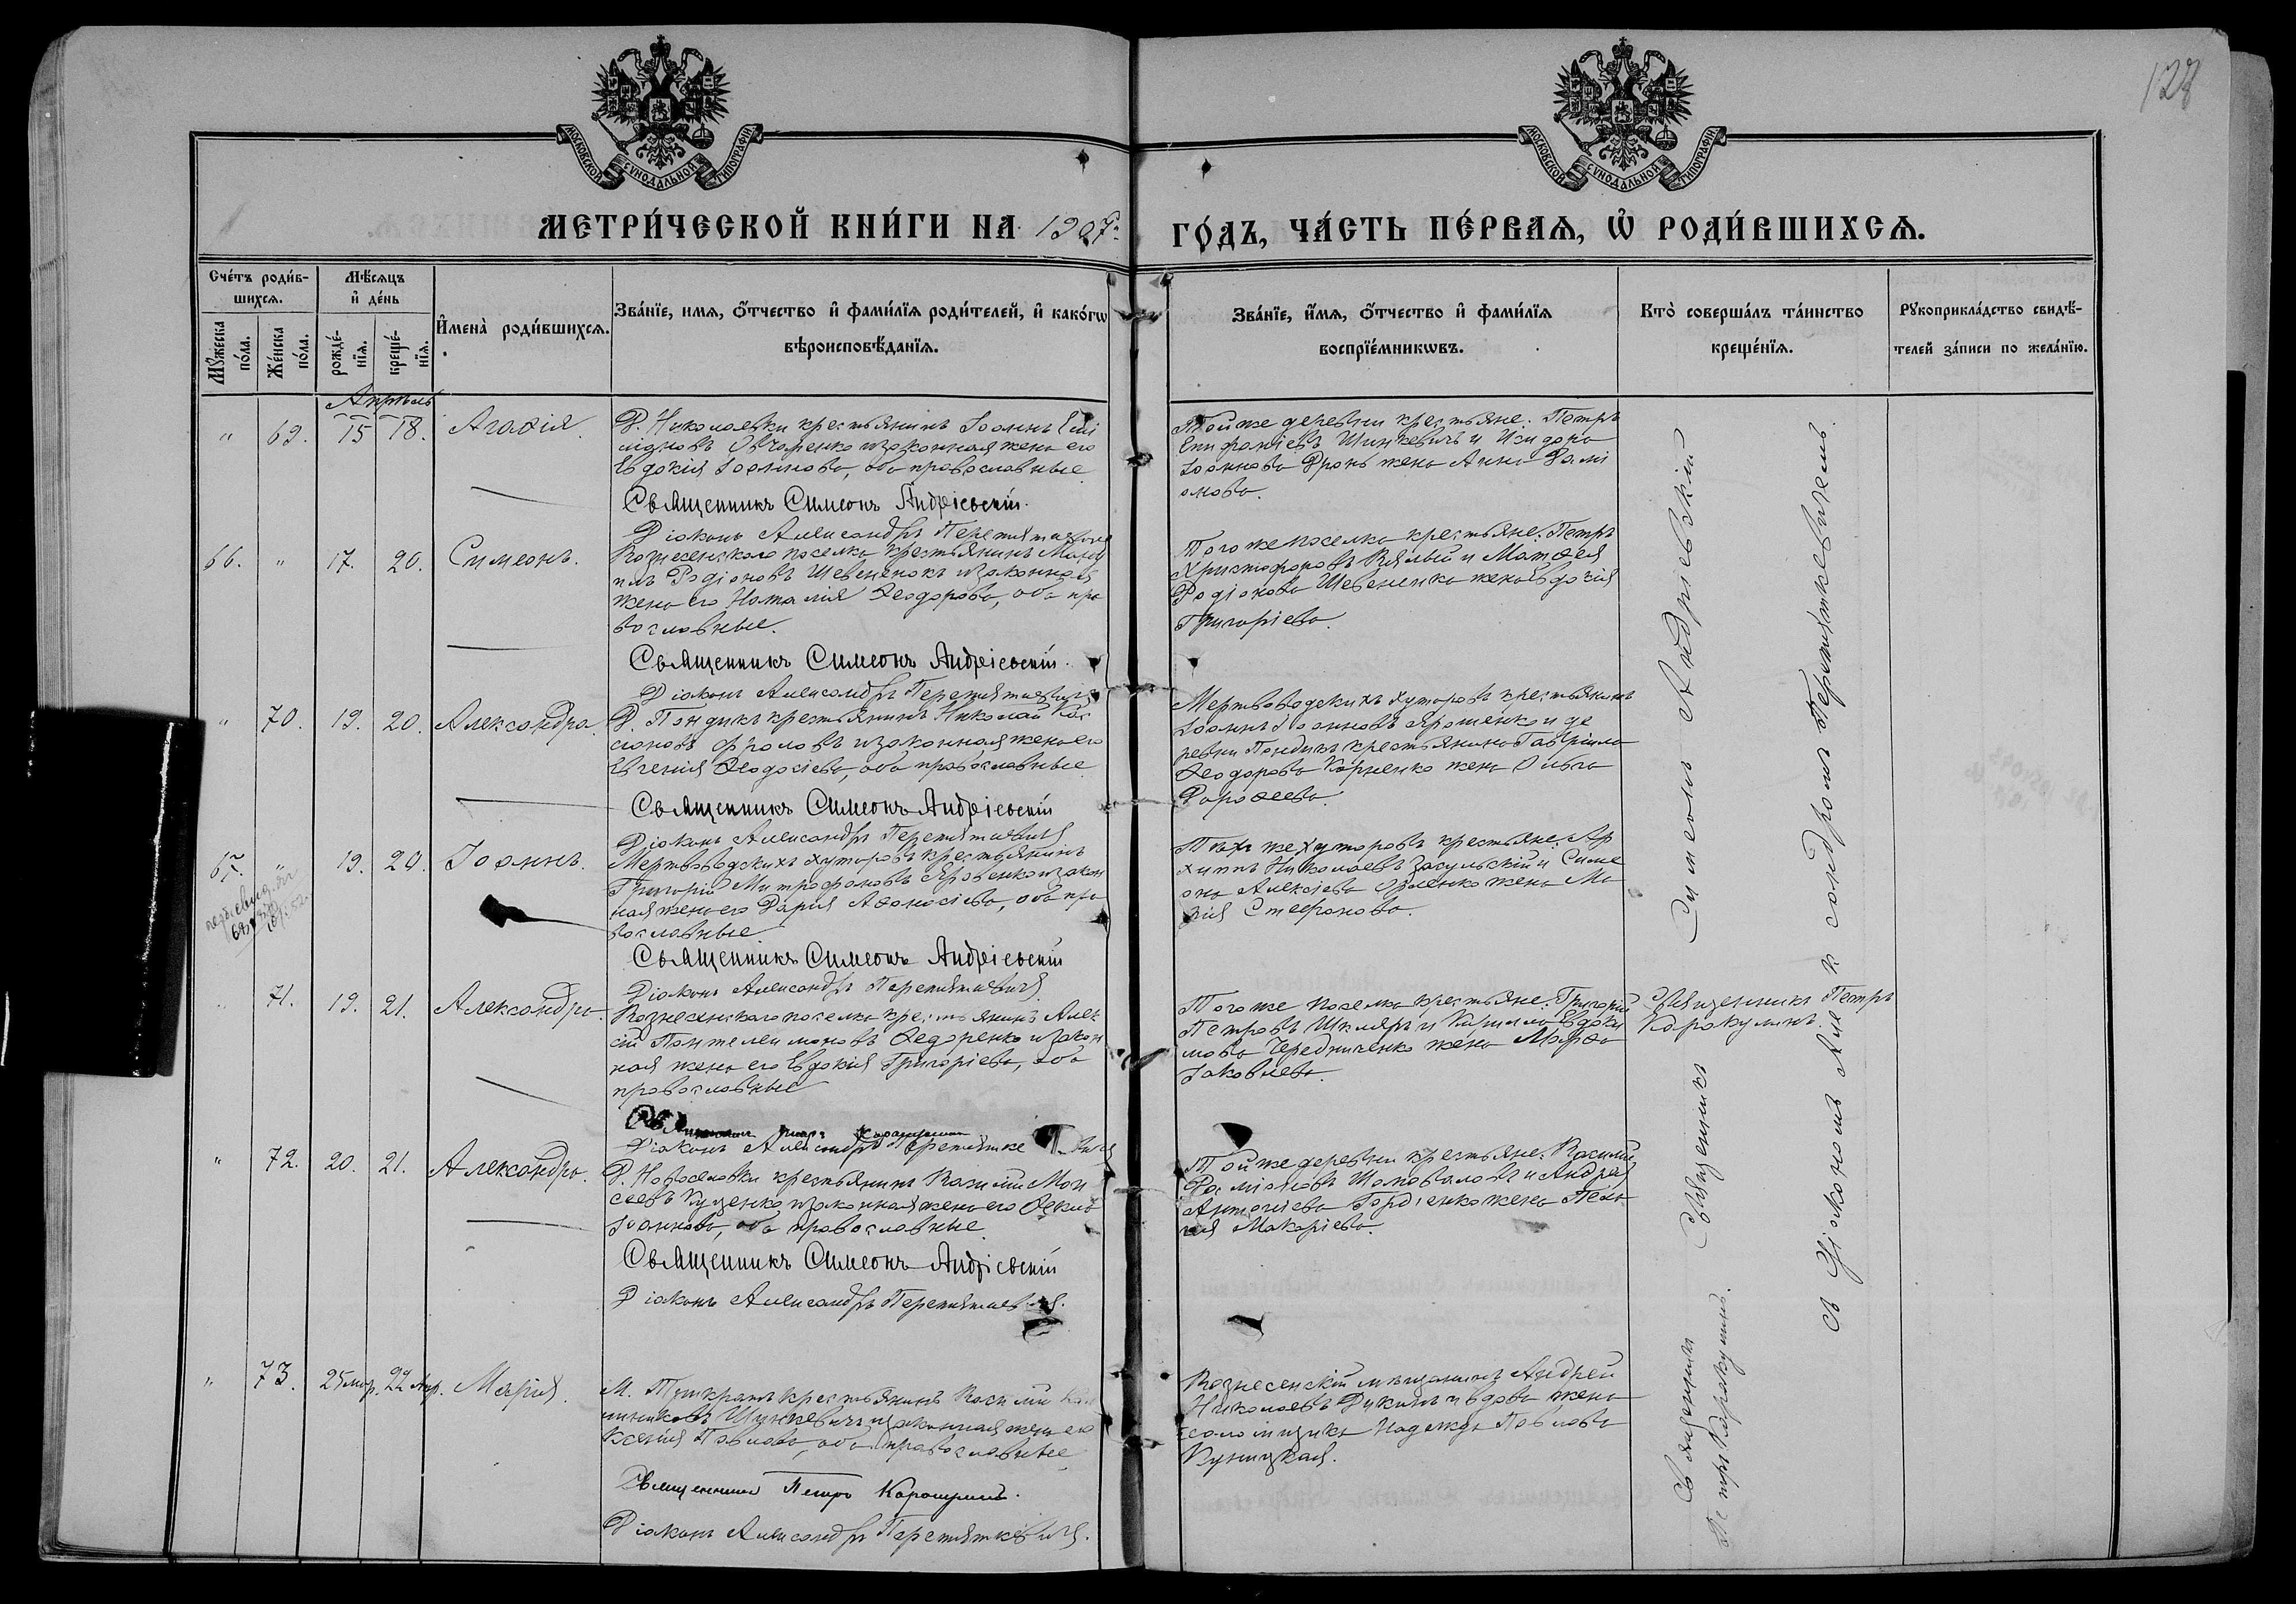 128
МОСКОВСКОЙ СѴНОДАЛЬНОЙ ТИПОГРАФІИ
МОСКОВСКОЙ СѴНОДАЛЬНОЙ ТИПОГРАФІИ
МЕТРИ́ЧЕСКОЙ КНИ́ГИ НА 1907 г. ГО́ДЪ, ЧА́СТЬ ПЕ́РВАѦ, Ѡ҆ РОДИ́ВШИХСѦ.
Сче́тъ роди́в-
шихсѧ.
Мꙋжеска по́ла.
Же́нска по́ла.
Мѣ́сѧцъ
и҆ де́нь
рожде́-
нїѧ.
креще́-
нїѧ.
И҆мена̀ роди́вшихсѧ.
Зва́нїе, имѧ, ѻ҆́тчество и҆ фами́лїѧ роди́телей, и҆ како́гѡ
вѣроисповѣ́данїѧ.
Зва́нїе, и҆́мѧ, ѻ҆́тчество и҆ фами́лїѧ
воспрїе́мникѡвъ.
Кто̀ соверша́лъ та́инство
креще́нїѧ.
Рꙋкоприкла́дство свидѣ́-
телей за́писи по жела́нїю.
Апрѣль
" 69. 15 18. Агаѳія.
Д. Николаевки крестьянинъ Іоаннъ
Овчаренко и законная жена его
Евдокія Іоаннова, оба православные
Священникъ Симеонъ Андріевскій.
Діаконъ Александръ Перетяткевичъ
Той же деревни крестьяне: Петръ
Епифаніевъ Шинкевичъ и Исидора
Іоаннова Дронь жена Анна Дамі
анова.
66. " 17. 20. Симеонъ.
Вознесенскаго поселка крестьянинъ
Родіоновъ Шевененокъ и законная
жена его Наталія Ѳеодорова, оба пра
вославные.
Священникъ Симеонъ Андріевскій.
Діаконъ Александръ Перетяткевичъ
Того же поселка крестьяне: Петръ
Христофоровъ Вялый и Матѳея
Родіонова Шевененка жена Евдокія
Григоріева.
" 70. 19. 20. Александра.
Д. Пондикъ крестьянинъ Николай Кас
сіановъ Фроловъ и законная жена его
Евгенія Ѳеодосіева, оба православные
Священникъ Симеонъ Андріевскій
Діаконъ Александръ Перетяткевичъ
Мертвоводскихъ хуторовъ крестьянинъ
Іоаннъ Іоанновъ Ярошенко и де
ревни Пондикъ крестьянина Гавріила
Ѳеодорова Корненко жена Ольга
Дороѳеева.
67. " 19. 20. Іоаннъ.
Мертвоводскихъ хуторовъ крестьянинъ
Григорій Митрофановъ Яровенко и закон
ная жена его Дарія Аѳанасіева, оба пра
вославные.
Священникъ Симеонъ Андріевскій
Діаконъ Александръ Перетяткевичъ
Тѣхъ же хуторовъ крестьяне: Ар
хиппъ Николаевъ Засульскій и Симе
она Алексіева жена Ма
рія Стефанова.
71. 19. 21. Александра.
Вознесенскаго поселка крестьянинъ Алек
сій Пантелеимоновъ Ѳедоренко и закон
ная жена его Евдокія Григоріева, оба
православные
Діаконъ Александръ Перетяткевичъ
Того же поселка крестьяне: Григорій
Петровъ Шкляръ и Кирилла Евдоки
мова Чередниченко жена Марѳа
Іаковлева.
Священникъ Петръ
Каракулинъ.
" 72. 20. 21. Александра.
Д. Новоселовки крестьянинъ Василій Мои
сеевъ Куценко и законная жена его Ѳекла
Іоаннова, оба православные.
Священникъ Симеонъ Андріевскій
Діаконъ Александръ Перетяткевичъ.
Той же деревни крестьяне: Василій
Даміановъ Шаповаловъ и Андрея
Антоніева Гордіенко жена Пела
гія Макаріева.
" 73. 25 мар. 22 Апр. Марія.
М. крестьянинъ Василій
Шункевичъ и законная жена его
Ксенія Павлова, оба православные
Священникъ Петръ Каракулинъ.
Діаконъ Александръ Перетяткевичъ.
Вознесенскій мѣщанинъ Андрей
Николаевъ Дукинъ и вдова жена
Надежда Павлова
Куницкая.
Священникъ Симеонъ Андріевскій
съ Діакономъ Александромъ Перетяткевичемъ.
Священникъ
Петръ Каракулинъ.